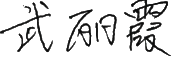 武丽霞